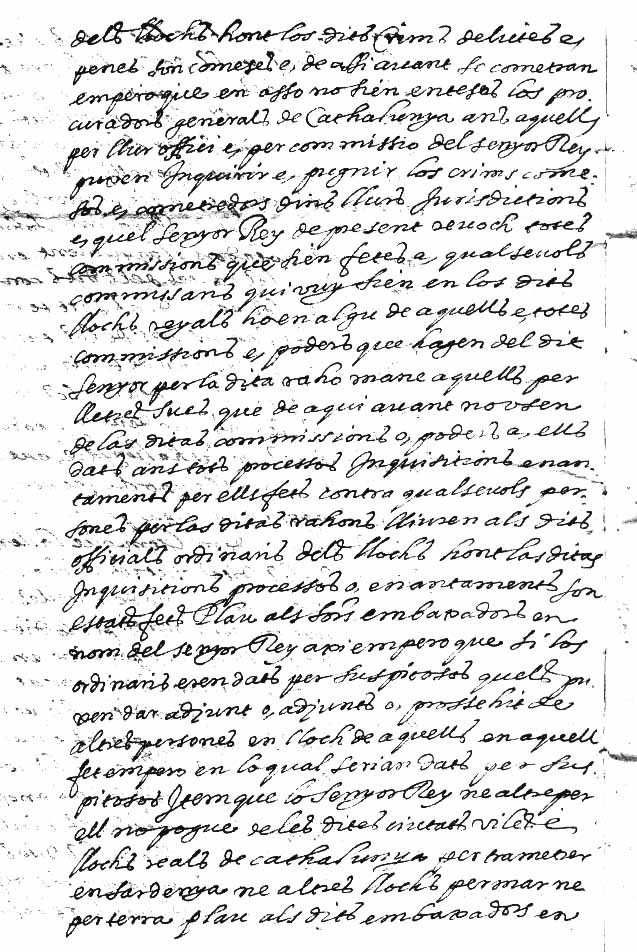 dels llochs hont los dits Crims delictes e,
penes son comeses e, de assi auant se cometran
empero que en asso no sien enteses los pro,
curadors generals de Cathalunya ans aquells
per llur offici e, per commissio del senyor Rey
puxen Inquirir e, pugnir los crims come-
sos e, cometedors dins llurs Jurisdictions
e, quel Senyor Rey de present reuoch totes
commissions que sien fetes a, qualseuols
commissaris qui vuy sien en los dits
llochs reyals ho en algu de aquells e, totes
commissions e, poders que hagen del dit
Senyor per la dita raho mane a quells per
lletres sues que de aqui auant no vsen
de las ditas commissions o, poders a, ells
dats ans tots processos Inquisitions enan-
taments per ells fets contra qualseuols per-
sones per las ditas rahons lliuren als dits
officials ordinaris dels llochs hont las ditas
Inquisitions processos o, enantaments son
estats fets Plau als sors embaxadors en
nom del senyor Rey axi empero que si los
ordinaris eren dats per suspitosos quels pu-
xen dar adjunt o, adjunts o, prossehit de
altres persones en lloch de aquells en aquell
fet empero en lo qual serian dats per sus-
pitosos Item que lo Senyor Rey ne altre per
ell no pogue de les dites ciutats viles e
llochs reals de cathalunya per trametrer
en Sardenya ne altres llochs per mar ne
per terra plau als dits embaxadors en